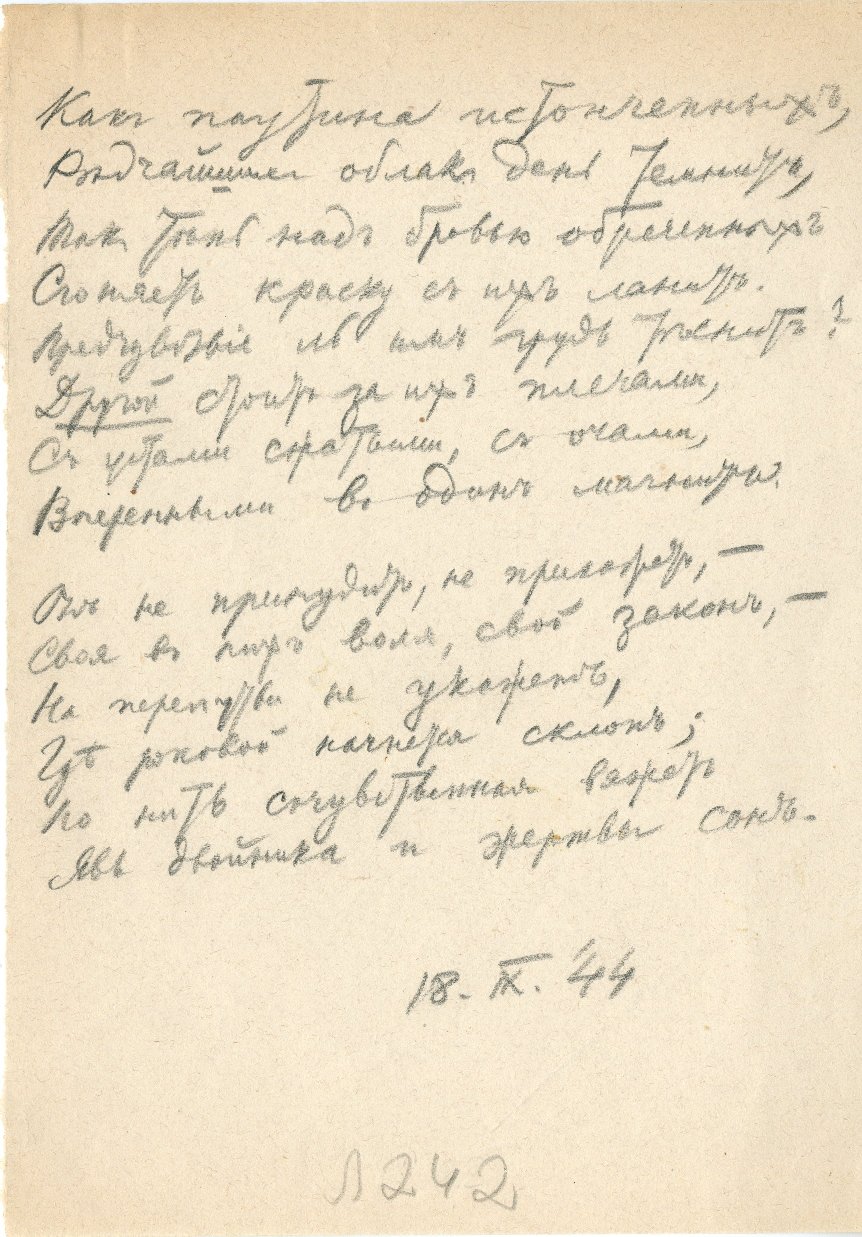 Какъ паутина истонченныхъ,
Рѣдчайшихъ облакъ день темнитъ,
Такъ тѣнь надъ бровью обреченныхъ
Сгоняетъ краску съ ихъ ланитъ.
Предчувствіе ль имъ грудь тѣснитъ?
Другой стоитъ за ихъ плечами,
Съ устами сжатыми, съ очами,
Вперенными въ одинъ магнитъ.
Онъ не принудитъ, не прикажетъ, –
Своя въ нихъ воля, свой законъ, –
На перепутьи не укажетъ,
Гдѣ роковой начнется склонъ;
Но нить сочувственная вяжетъ
Явь двойника и жертвы сонъ.
18. IX. '44
Л 242